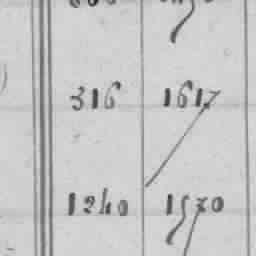 316 1617
1240 1570